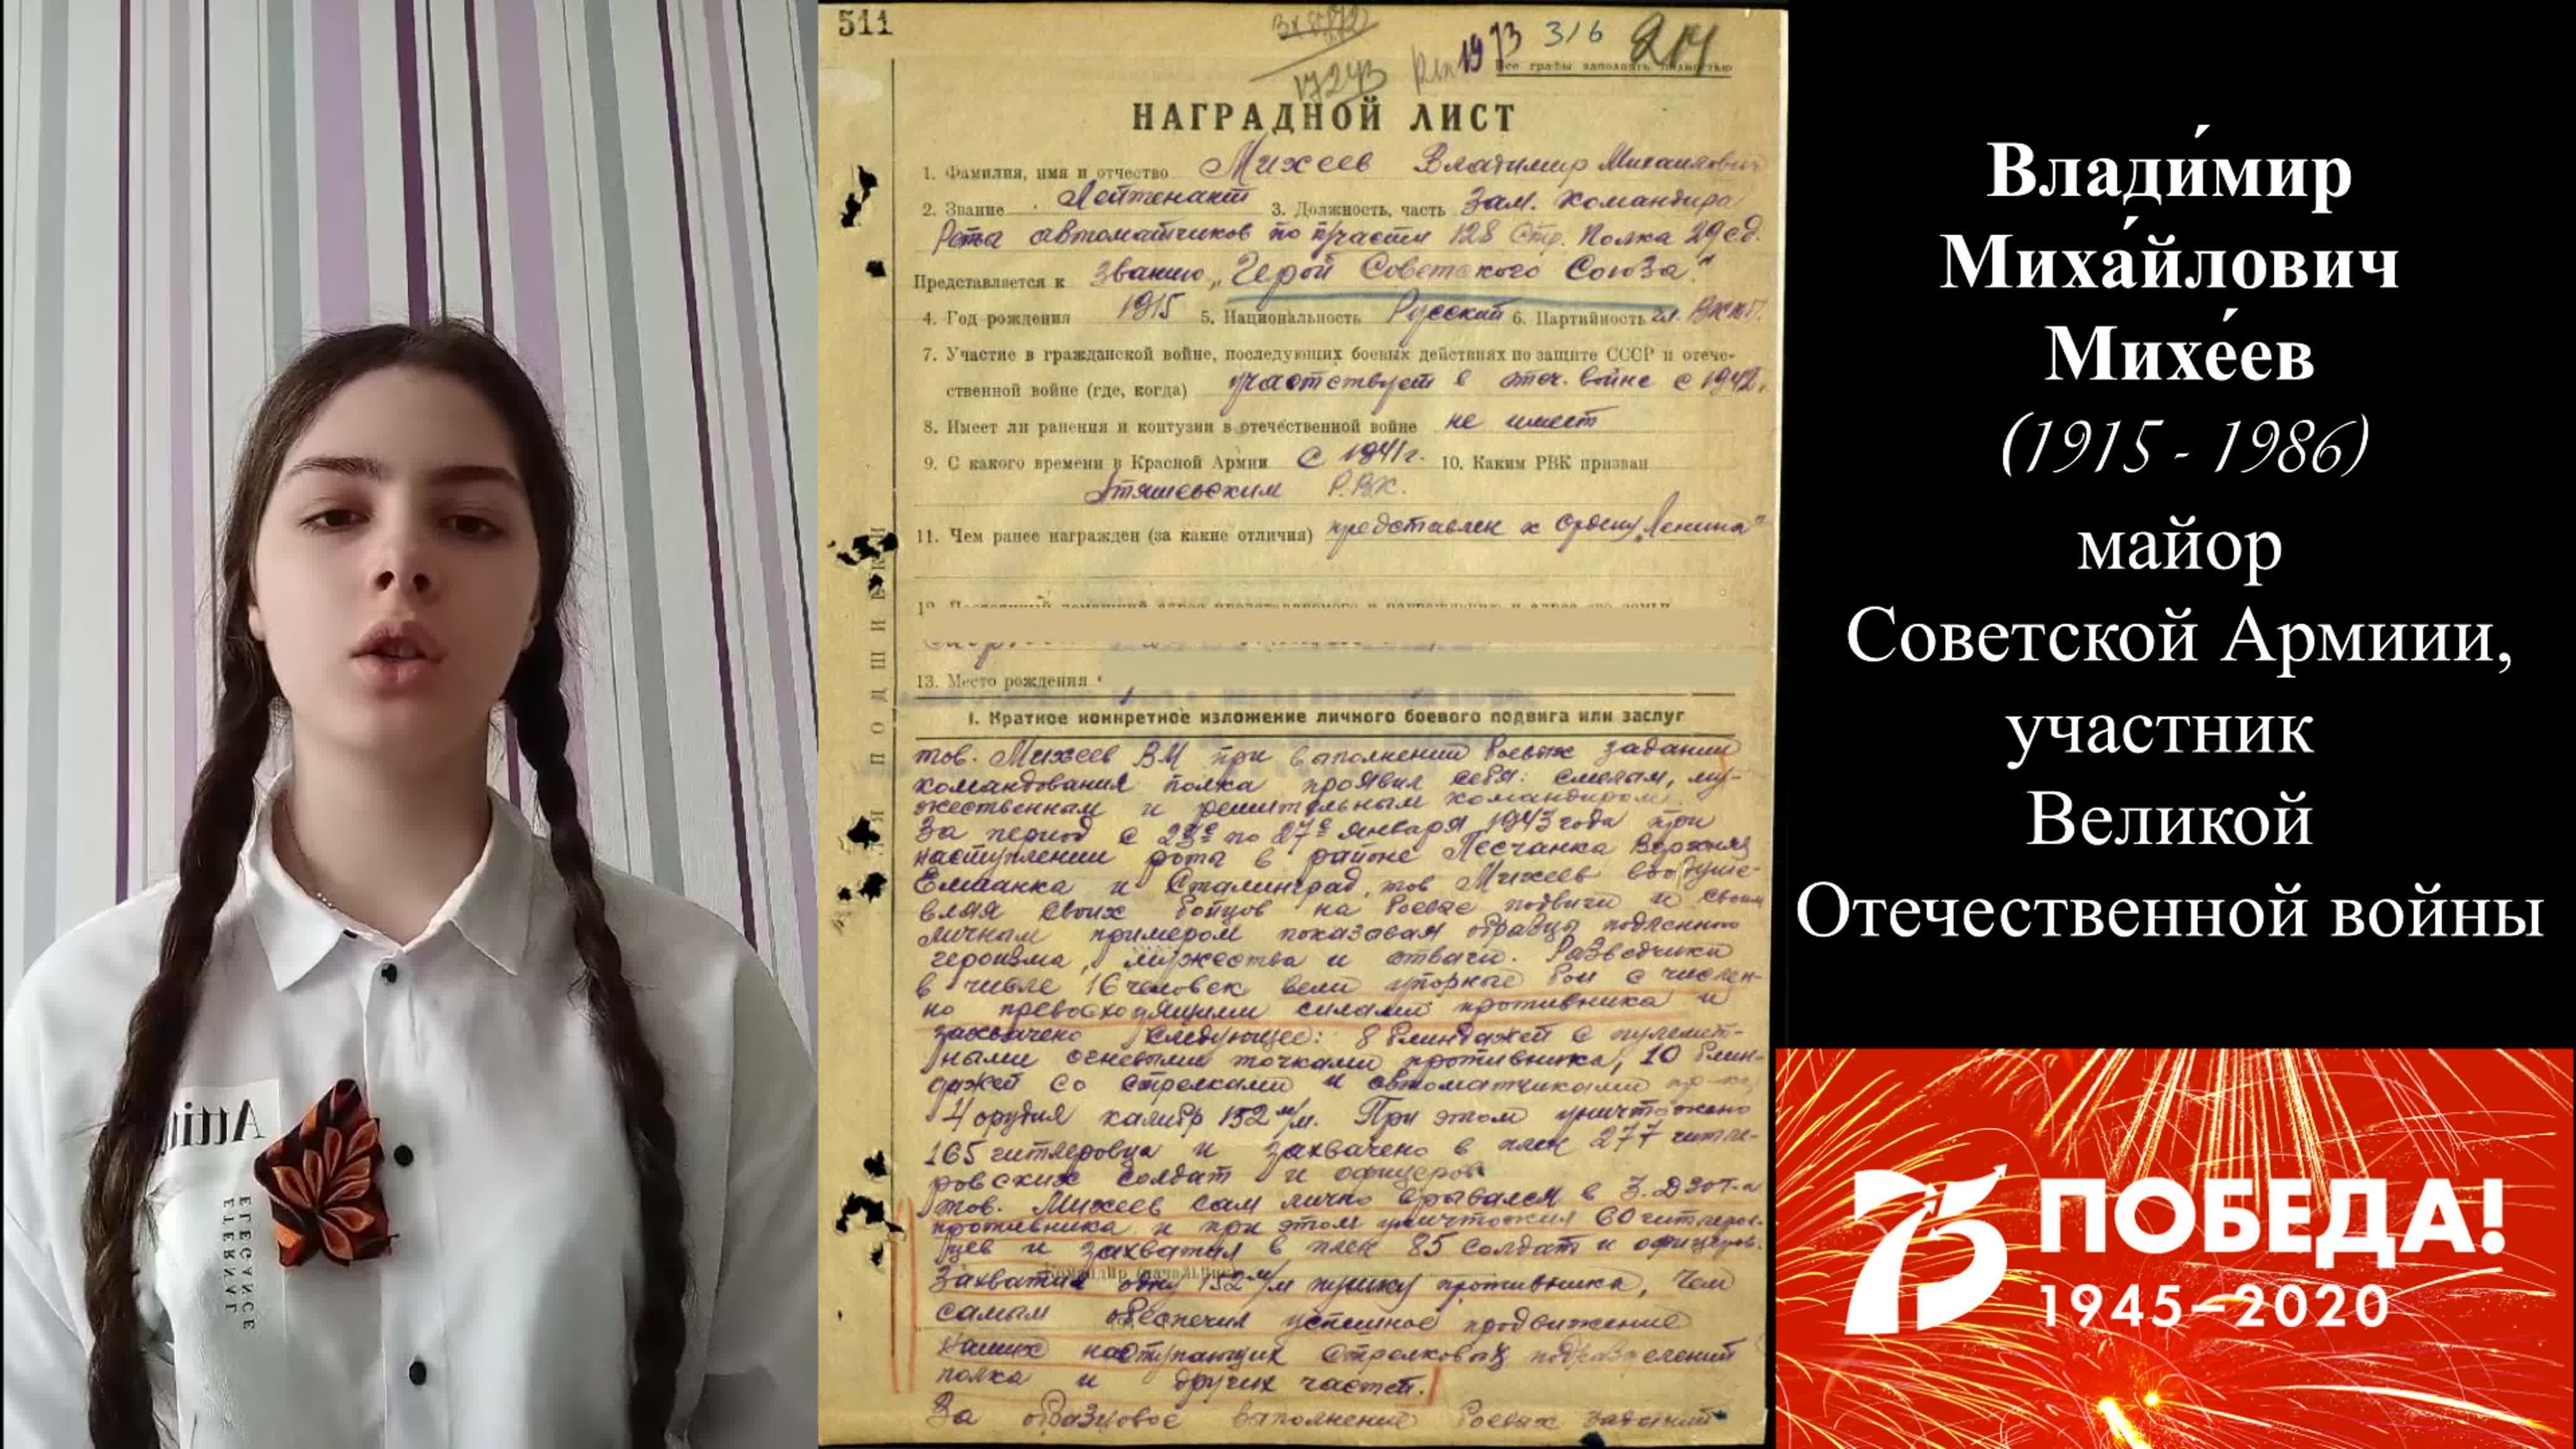 Atti
ELEGANCE
ETERNAL
511
1973
316
214
17243
Все графы заполнять полностью
НАГРАДНОЙ ЛИСТ
1. Фамилия, имя и отчество Михеев Владимир Михайлович
2. Звание Лейтенант 3. Должность, часть Зам. командира
Роты автоматчиков по п/части 128 Стр. Полка 29 сд.
Представляется к званию „Герой Советского Союза"
4. Год рождения 1915 5. Национальность Русский 6. Партийность чл. ВКП
7. Участие в гражданской войне, последующих боевых действиях по защите СССР и отече-
ственной войне (где, когда) участвует в отеч. войне с 1942.
8. Имеет ли ранения и контузии в отечественной войне не имеет
9. С какого времени в Красной Армии С 1941 г. 10. Каким РВК призван
Атяшевским Р.В.К.
11. Чем ранее награжден (за какие отличия) представлен к ордену „Ленина"
13. Место рождения
I. Краткое конкретное изложение личного боевого подвига или заслуг
тов. Михеев В М при выполнении боевых заданий
командования полка проявил себя: смелым, му-
жественным и решительным командиром.
За период с 23го по 27го января 1943 года при
наступлении роты в районе Песчанка Верхняя
Елшанка и Сталинград, тов Михеев воодуше-
вляя своих бойцов на боевые подвиги и своим
личным примером показывая образцы подленного
героизма, мужества и отваги. Разведчики
в числе 16 человек вели упорные бои с числен-
но превосходящими силами противника и
захвачено следующее: 8 блиндажей с пулемет-
ными огневыми точками противника, 10 блин-
дажей со стрелками и автоматчиками пр-ка,
4 орудия калибр 152 м/м. При этом уничтожено
165 гитлеровца и захвачено в плен 277 гитле-
ровских солдат и офицеров
тов. Михеев сам лично врывался в 3 ДЗОТ-а
противника и при этом уничтожил 60 гитлеров-
цев и захватил в плен 85 солдат и офицеров.
Захватил одну 152 м/м пушку противника, чем
самым обеспечил успешное продвижение
наших наступающих стрелковых подразделений
полка и других частей.
За образцовое выполнение боевых заданий
Влади́мир
Миха́йлович
Михе́ев
(1915 - 1986)
майор
Советской Армиии,
участник
Великой
Отечественной войны
75 ПОБЕДА!
1945–2020